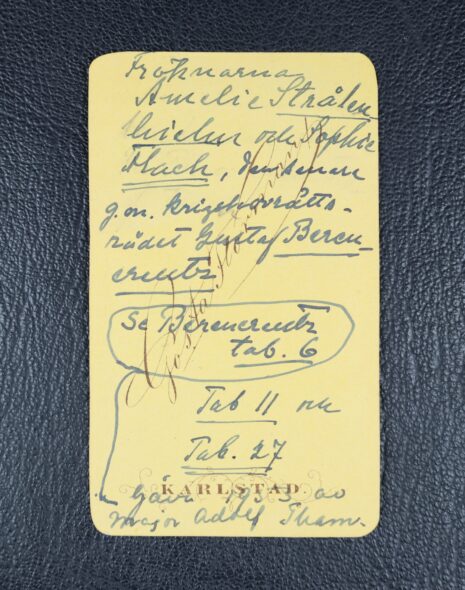 Fröknarna
Amelie Strålen
hielm och Sophie
Flach, den senare
g.m. krigshovrätts-
rådet Gustaf Beren_
creutz
Gösta Florman
Se Berencreutz
tab. 6
Tab 11 och
Tab. 27
KARLSTAD.
gåva 1953 av
major Adolf Tham.